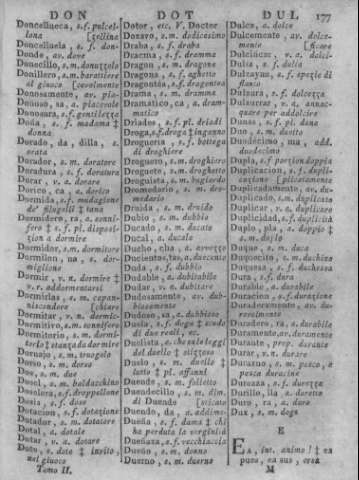 DON DOT DUL 177
Doncellueca, s.f. pulcel-
lona [zelline
Doncellueja, s. f. don-
Donde, av. dove
Donecillo, s.m. donuzzolo
Donillero, s.m. barattiere
di giuoco [cevolmente
Donosamente, av. pia-
Donoso, sa, a. piacevole
Donosura, s.f. gentilezza
Doña, s. f. madama ‡
donna
Dorado, da, dilla, s.
orata
Dorador, s. m. doratore
Doradura, s. f. doratura
Dorar, v. a. dorare
Dorico, ca, a. dorico
Dormida, s.f. mudagione
de' filugelli ‡ tana
Dormidero, ra, a. sonni-
fero ‡ s. f. pl. disposi-
zion a dormire
Dormidor, s.m. dormitore
Dormilon, na, s. dor-
miglione
Dormir, v. n. dormire ‡
v. r. addormentarsi
Dormirlas, s. m. capan-
niscondere [chiare
Dormitar, v. n. dormic-
Dormitivo, s.m. sonnifero
Dormitorio, s. m. dormi-
torio ‡ stanza da dormire
Dornajo, s. m. truogolo
Dorso, s. m. dorso
Dos, s. m. due
Dosel, s. m. baldacchino
Doselera, s.f. droppellone
Dosis, s. f. dose
Dotacion, s.f. dotazione
Dotador, s. m. dotatore
Dotal, a. dotale
Dotar, v. a. dotare
Dote, s. dote ‡ invito,
nel giuoco
Tomo II.
Dotor, etc. V. Doctor
Dozavo, s.m. dodicesimo
Draba, s. f. draba
Dracma, s. f. dramma
Dragon, s. m. dragone
Dragona, s. f. aghetto
Dragontea, s.f. dragontea
Drama, s. m. dramma
Dramatico, ca, a. dram-
matico
Driadas, s. f. pl. driadi
Droga, s.f. droga ‡ inganno
Drogueria, s. f. bottega
di droghiere
Droguero, s.m. droghiero
Droguete, s.m. droghetto
Droguista, s.m. bugiardo
Dromedario, s. m. dro-
medario
Druida, s. m. druido
Dubio, s. m. dubbio
Ducado, s. m. ducato
Ducal, a. ducale
Ducho, cha, a. avvezzo
Ducientos, tas, a. ducento
Duda, s. f. dubbio
Dudable, a. dubitabile
Dudar, v. a. dubitare
Dudosamente, av. dub-
biosamente
Dudoso, sa, a. dubbioso
Duela, s. f. doga ‡ scudo
di due reali, ec.
Duelista, a. che sa le leggi
del duello ‡ stizzoso
Duelo, s. m. duello ‡
lutto ‡ pl. affanni
Duende, s. m. folletto
Duendecillo, s. m. dim.
di Duende [sticato
Duendo, da, a. addime-
Dueña, s. f. dama ‡ chi
ha perduta la verginità
Dueñaza, s.f. vecchiaccia
Dueño, s. m. donno
Duerno, s. m. duerno
Dulce, a. dolce
Dulcemente, av. dolce-
mente [ficare
Dulcificar, v. a. dolci-
Dulia, s. f. dulia
Dulzayna, s.f. spezie di
flauto
Dulzura, s. f. dolcezza
Dulzurar, v. a. annac-
quare per addolcire
Dunas, s. f. pl. duna
Duo, s. m. duetto
Duodecimo, ma, add.
duodecimo
Dupla, s. f. porzion doppia
Duplicacion, s. f. dupli-
cazione [plicatamente
Duplicadamente, av. du-
Duplicado, s.m. duplicato
Duplicar, v. a. duplicare
Duplicidad, s.f. duplicità
Duplo, pla, a. doppio ‡
s. m. duplo
Duque, s. m. duca
Duquecito, s. m. duchino
Duquesa, s. f. duchessa
Dura, s. f. dura
Durable, a. durabile
Duracion, s. f. durazione
Duraderamente, av. du-
revolmente
Duradero, ra, a. durabile
Duramente, av. duramente
Durante, prep. durante
Durar, v. n. durare
Durazno, s. m. pesco, e
pesca duracine
Dureza, s. f. durezza
Durillo, lla, a. duretto
Duro, ra, a. duro
Dux, s. m. doge
E
EA, int. animo! ‡ ea
pues, ea sus, orsù
M